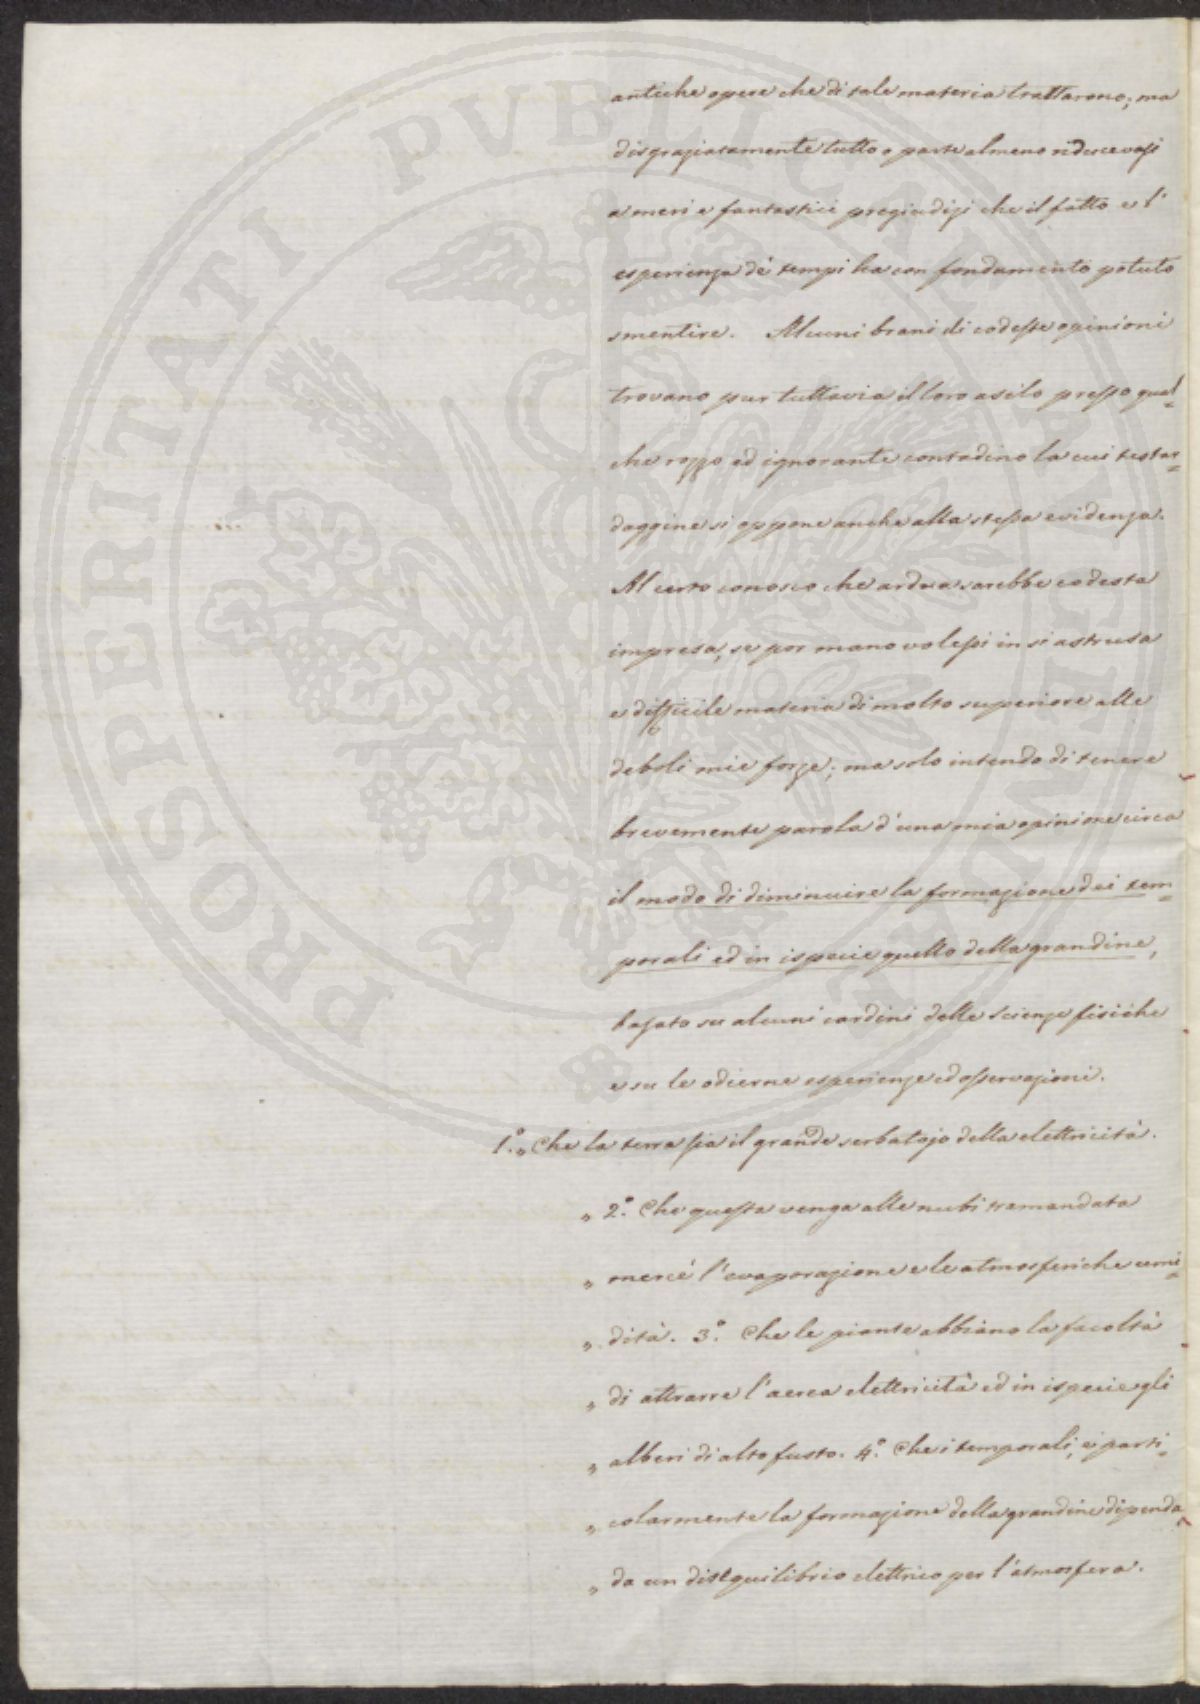 antiche opere che di tale materia trattarono; ma
disgraziatamente tutto o parte almeno riducevasi
a meri e fantastici pregiudizj che il fatto e l'
esperienza de' tempi ha con fondamento potuto
smentire. Alcuni brani di codeste opinioni
trovano pur tuttavia il loro asilo presso qual=
che rozzo ed ignorante contadino la cui testar=
daggine si oppone anche alla stessa evidenza.
Al certo conosco che ardua sarebbe codesta
impresa, se por mano volessi in si astrusa
e difficile materia di molto superiore alle
deboli mie forze; ma solo intendo di tenere
brevemente parola d'una mia opinione circa
il modo di diminuire la formazione dei tem=
porali ed in ispecie quello della grandine,
basato su alcuni cardini delle scienze fisiche
e su le odierne esperienze ed osservazioni.
1.° „ Che la terra sia il grande serbatojo della elettricità.
„ 2.° Che questa venga alle nubi tramandata
„ mercè l'evaporazione e le atmosferiche umi=
„ dità. 3.° Che le piante abbiano la facoltà
„ di attrarre l'aerea elettricità ed in ispecie gli
„ alberi di alto fusto. 4.° Che i temporali, e parti=
„ colarmente la formazione della grandine dipenda
„ da un disequilibrio elettrico per l'atmosfera.
PROSPERITATI PVBLICAE AVGENDAE